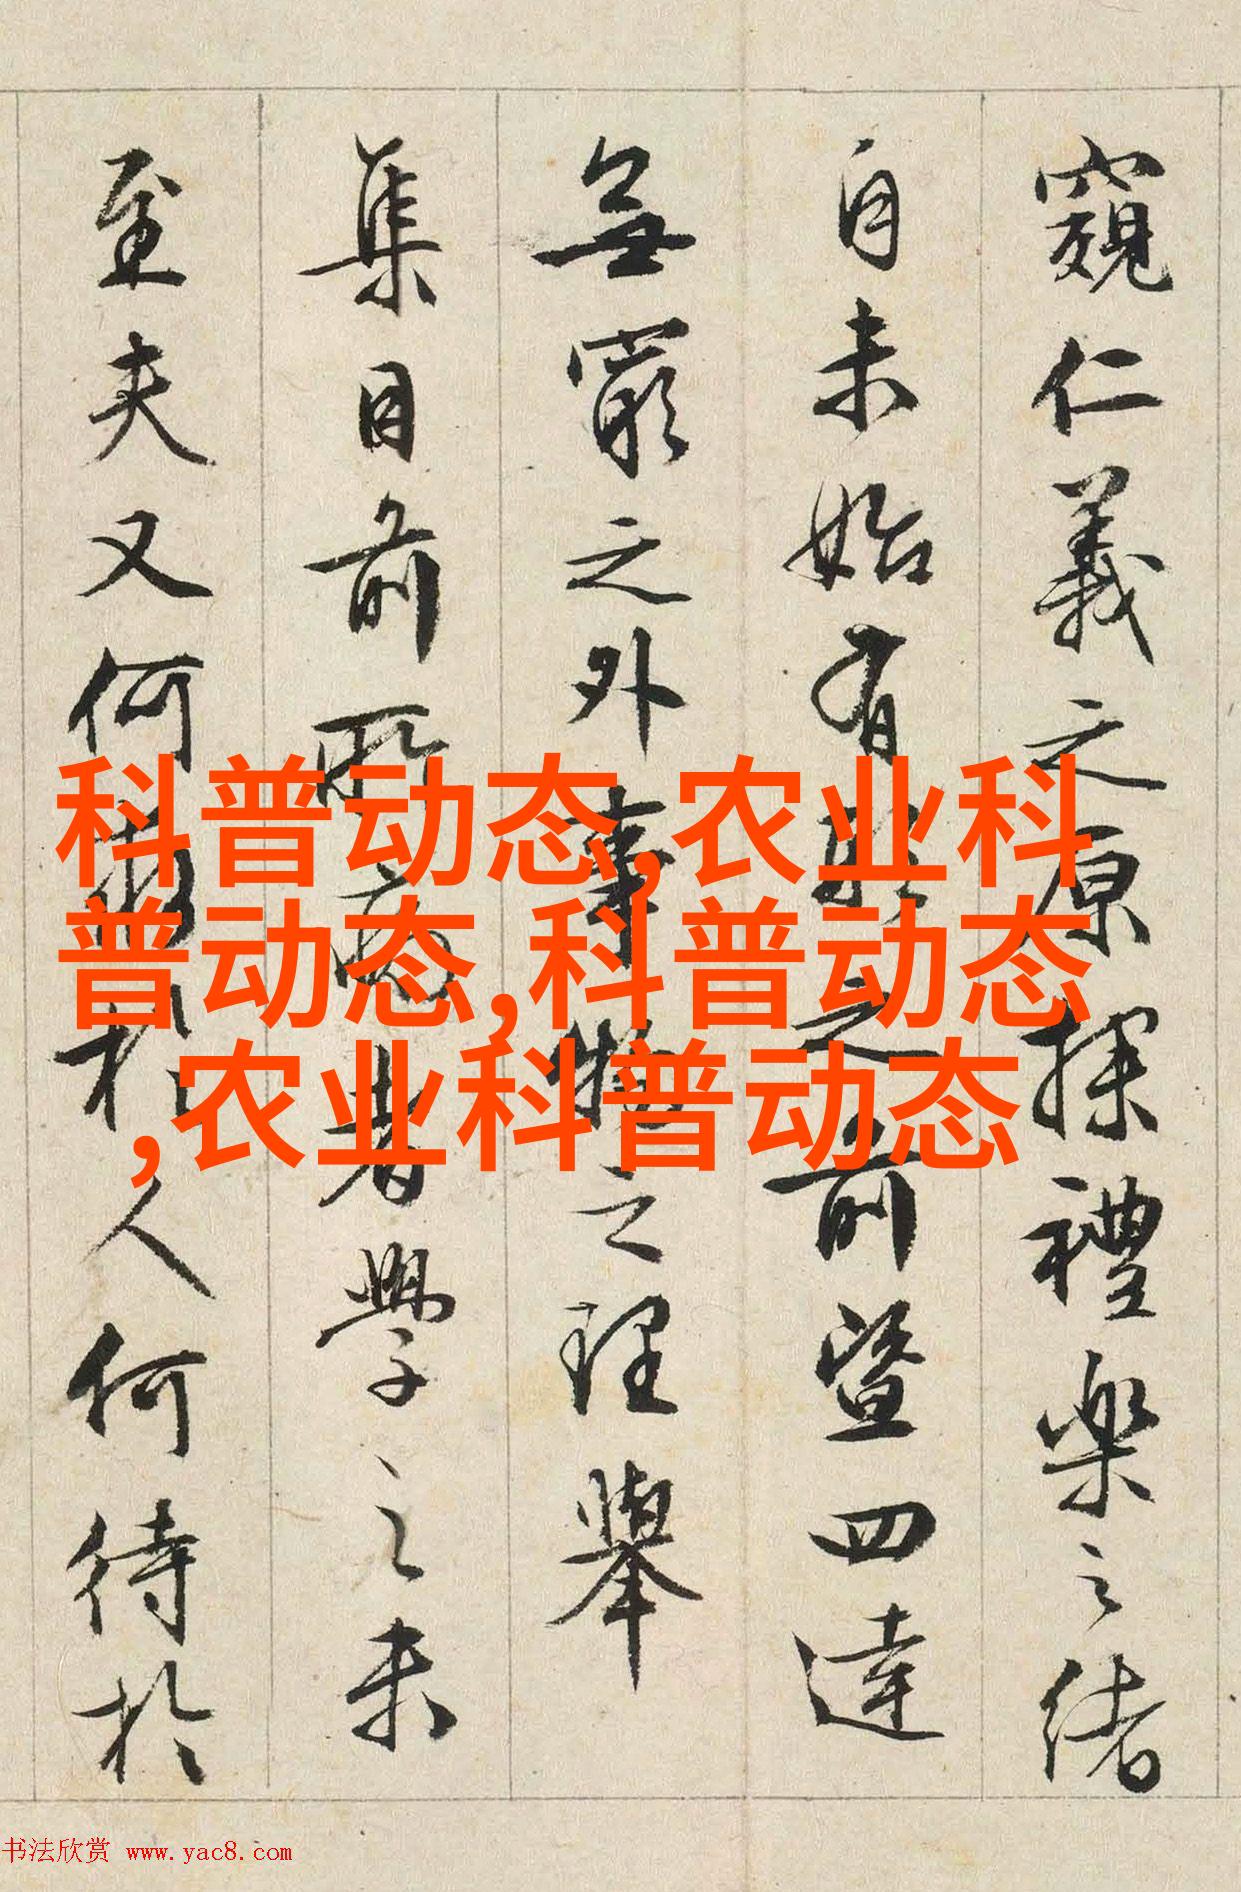 窺仁義之原探禮樂之緒
自未始有形之前暨四達
無窮之外事物之理舉
集目前所病者學之未
至夫又何於人何待於
科普动态,农业科
普动态,科普动态
,农业科普动态
书法欣赏 www.yac8.com